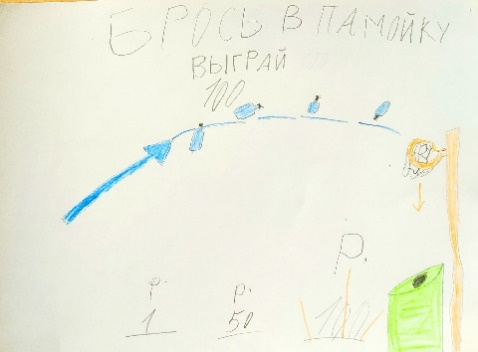 БРОСЬ В ПАМОЙКУ
ВЫГРАЙ
100
р.
р. р.
1 50 100